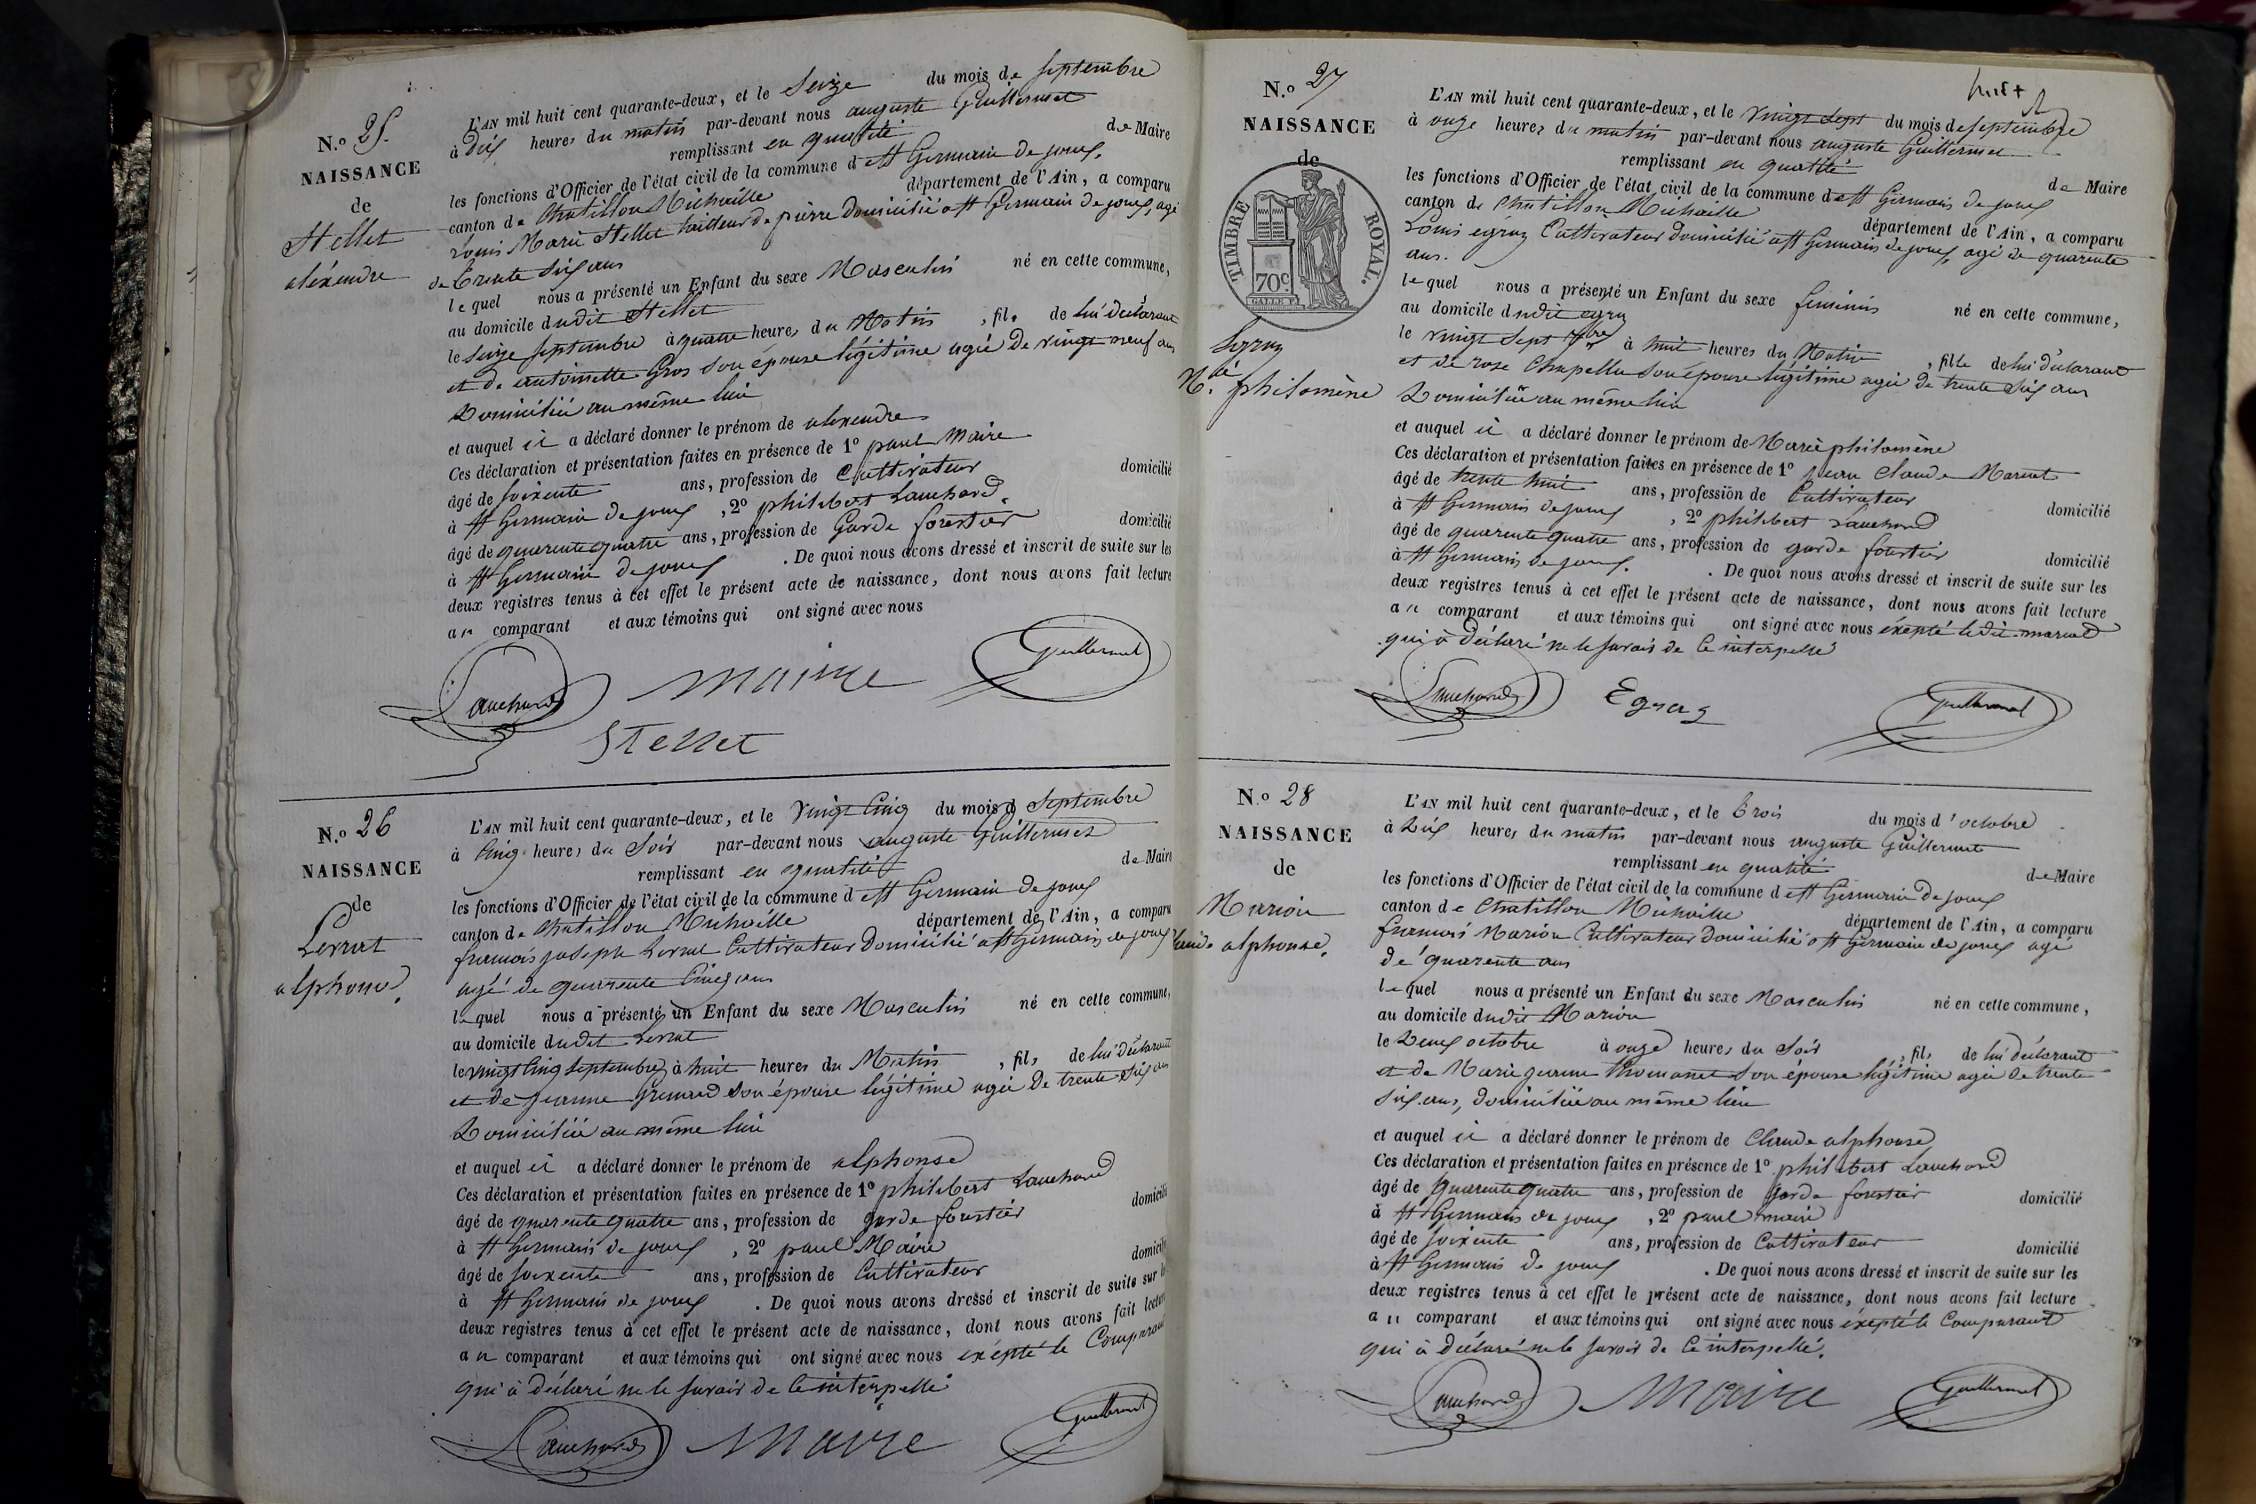 N.o 25.
NAISSANCE
de
Stellet
alexendre
L'AN mil huit cent quarante-deux, et le Seize du mois de septembre
à Dix heures du matin par-devant nous auguste Guillermet
remplissant en qualité de Maire
les fonctions d'Officier de l'état civil de la commune de St Germain de joux,
canton de Chatillon Michaille département de l'Ain, a comparu
Louis Marie Stellet tailleur de pierre Domicilié a St Germain de joux, agé
de trente Six ans
lequel nous a présenté un Enfant du sexe Masculin né en cette commune,
au domicile dudit Stellet
le Seize septembre à quatre heures du Matin, fils de lui Déclarant
et de antoinette Gros Son épouse légitime agée De vingt neuf ans
Domiciliée au même lieu
et auquel il a déclaré donner le prénom de alexendre
Ces déclaration et présentation faites en présence de 1o paul Maire
âgé de soixente ans, profession de Cultivateur domicilié
à St Germain de joux, 2o philibert Lauchard.
âgé de quarente quatre ans, profession de Garde forestier domicilié
à St Germain de joux. De quoi nous avons dressé et inscrit de suite sur les
deux registres tenus à cet effet le présent acte de naissance, dont nous avons fait lecture
au comparant et aux témoins qui ont signé avec nous
Lauchard Maire Guillermet
Stellet
N.o 26
NAISSANCE
de
Lerrat
alphonse.
L'AN mil huit cent quarante-deux, et le Vingt Cinq du mois d Septembre
à Cinq heures du Soir par-devant nous auguste Guillermet
remplissant en qualité de Maire
les fonctions d'Officier de l'état civil de la commune de St Germain De joux
canton de Chatillon Michaille département de l'Ain, a comparu
francois joseph Lerrat Cultivateur Domicilié a St Germain de joux
agé de quarente Cinq ans
lequel nous a présenté un Enfant du sexe Masculin né en cette commune,
au domicile dudit Lerrat
le vingt Cinq septembre à huit heures du Matin, fils de lui Déclarant
et de jeanne Grenard Son épouse légitime agée De trente Six ans
Domiciliée au même lieu
et auquel il a déclaré donner le prénom de alphonse
Ces déclaration et présentation faites en présence de 1o philibert Lauchard
âgé de quarente quatre ans, profession de garde forestier domicilié
à St Germain de joux, 2o paul Maire
âgé de soixente ans, profession de Cultivateur domicilié
à St Germain de joux. De quoi nous avons dressé et inscrit de suite sur les
deux registres tenus à cet effet le présent acte de naissance, dont nous avons fait lecture
au comparant et aux témoins qui ont signé avec nous éxépté le Comparant
qui à Déclaré ne le savoir de Ce interpellé
Lauchard Maire Guillermet
N.o 27
NAISSANCE
de
TIMBRE ROYAL.
70c
M. philomène
L'AN mil huit cent quarante-deux, et le vingt Sept du mois de septembre
à onze heures du matin par-devant nous auguste Guillermet
remplissant en qualité de Maire
les fonctions d'Officier de l'état civil de la commune de St Germain de joux
canton de Chatillon Michaille département de l'Ain, a comparu
Louis egraz Cultivateur Domicilié a St Germain de joux, agé de quarente
ans.
lequel nous a présenté un Enfant du sexe feminin né en cette commune,
au domicile dudit egraz
le vingt Sept 7bre à huit heures du Matin, fille de lui Déclarant
et de rose Chapelle Son épouse légitime agée De trente Six ans
Domiciliée au même lieu
et auquel il a déclaré donner le prénom de Marie philomène
Ces déclaration et présentation faites en présence de 1o jean Claude Marmet
âgé de trente huit ans, profession de Cultivateur domicilié
à St Germain de joux, 2o philibert Lauchard
âgé de quarente quatre ans, profession de garde forestier domicilié
à St Germain de joux. De quoi nous avons dressé et inscrit de suite sur les
deux registres tenus à cet effet le présent acte de naissance, dont nous avons fait lecture
au comparant et aux témoins qui ont signé avec nous éxepté ledit marmet
qui à Déclaré ne le savoir de Ce interpellé
Lauchard Egraz Guillermet
N.o 28
NAISSANCE
de
Marion
Claude alphonse.
L'AN mil huit cent quarante-deux, et le trois du mois d'octobre
à Dix heures du matin par-devant nous auguste Guillermet
remplissant en qualité de Maire
les fonctions d'Officier de l'état civil de la commune de St Germain De joux
canton de Chatillon Michaille département de l'Ain, a comparu
francois Marion Cultivateur Domicilié a St Germain de joux agé
de quarente ans
lequel nous a présenté un Enfant du sexe Masculin né en cette commune,
au domicile dudit Marion
le Deux octobre à onze heures du Soir, fils de lui déclarant
et de Marie jeanne Son épouse légitime agée De trente
Six ans, domiciliée au même lieu
et auquel il a déclaré donner le prénom de Claude alphonse
Ces déclaration et présentation faites en présence de 1o philibert Lauchard
âgé de quarente quatre ans, profession de garde forestier domicilié
à St Germain de joux, 2o paul maire
âgé de soixente ans, profession de Cultivateur domicilié
à St Germain de joux. De quoi nous avons dressé et inscrit de suite sur les
deux registres tenus à cet effet le présent acte de naissance, dont nous avons fait lecture
au comparant et aux témoins qui ont signé avec nous éxepté le Comparant
qui à déclaré ne le savoir de Ce interpellé.
Lauchard Maire Guillermet